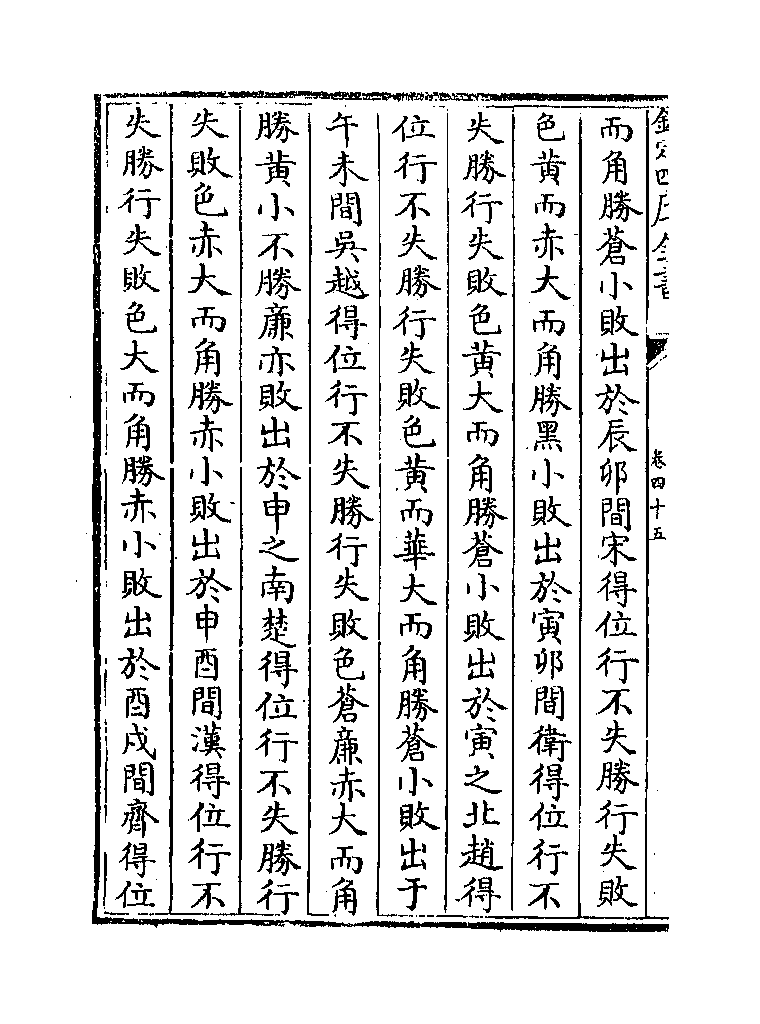 欽定四庫全書
卷四十五
而角勝蒼小敗出於辰卯間宋得位行不失勝行失敗
色黄而赤大而角勝黑小敗出於寅卯間衛得位行不
失勝行失敗色黄大而角勝蒼小敗出於寅之北趙得
位行不失勝行失敗色黄而華大而角勝蒼小敗出于
午未間吳越得位行不失勝行失敗色蒼亷赤大而角
勝黄小不勝亷亦敗出於申之南楚得位行不失勝行
失敗色赤大而角勝赤小敗出於申酉間漢得位行不
失勝行失敗色大而角勝赤小敗出於酉戍間齊得位